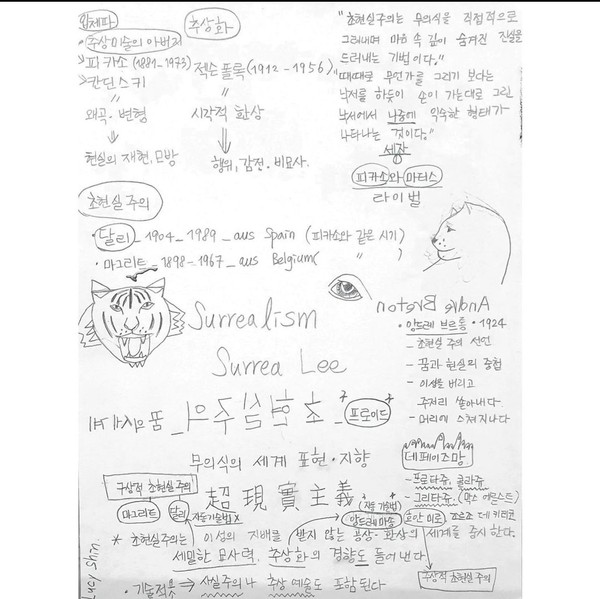 입체파
추상화
• 추상미술의 아버지
피카소 (1881-1973)
잭슨 폴록 (1912 - 1956)
> 칸딘스키
〃
〃
왜곡 · 변형
시각적 환상
⇓
⇓
현실의 재현, 모방
행위, 감전 · 비묘사.
"초현실주의는 무의식을 직접적으로
그려내며 마음 속 깊이 숨겨진 진실을
드러내는 기법이다."
"때때로 무언가를 그리기 보다는
낙서를 하듯이 손이 가는대로 그린
낙서에서 나중에 익숙한 형태가
나타나는 것이다."
세잔
피카소와 마티스
라이벌
초현실주의
• 달리 _ 1904 _ 1989 _ aus Spain (피카소와 같은 시기)
• 마그리트 _ 1898 - 1967 _ aus Belgium ( 〃 )
Surrealism
Surrea Lee
Andre Breton
• 앙드레 브르통 • 1924
- 초현실주의 선언
- 꿈과 현실의 중첩
- 이성을 버리고
주저리 쏟아내다
- 머리에 스쳐지나다
꿈의세계 _ 초현실주의
프로이드
무의식의 세계 표현 · 지향
데페이즈망
- 프로타쥬, 콜라쥬
- 그라타쥬. (막스 에른스트)
구상적 초현실주의
超現實主義
(자동기술법)
마그리트 달리 자동기술법 X
앙드레 마송 호안 미로 조르조 데 키리코
* 초현실주의는 이성의 지배를 받지 않는 공상 · 환상의 세계를 중시 한다.
세밀한 묘사력, 추상화의 경향도 들어간다
추상적 초현실주의
• 기술적 요소 ⇒ 사실주의나 추상 예술도 포함된다
Lucy Shin